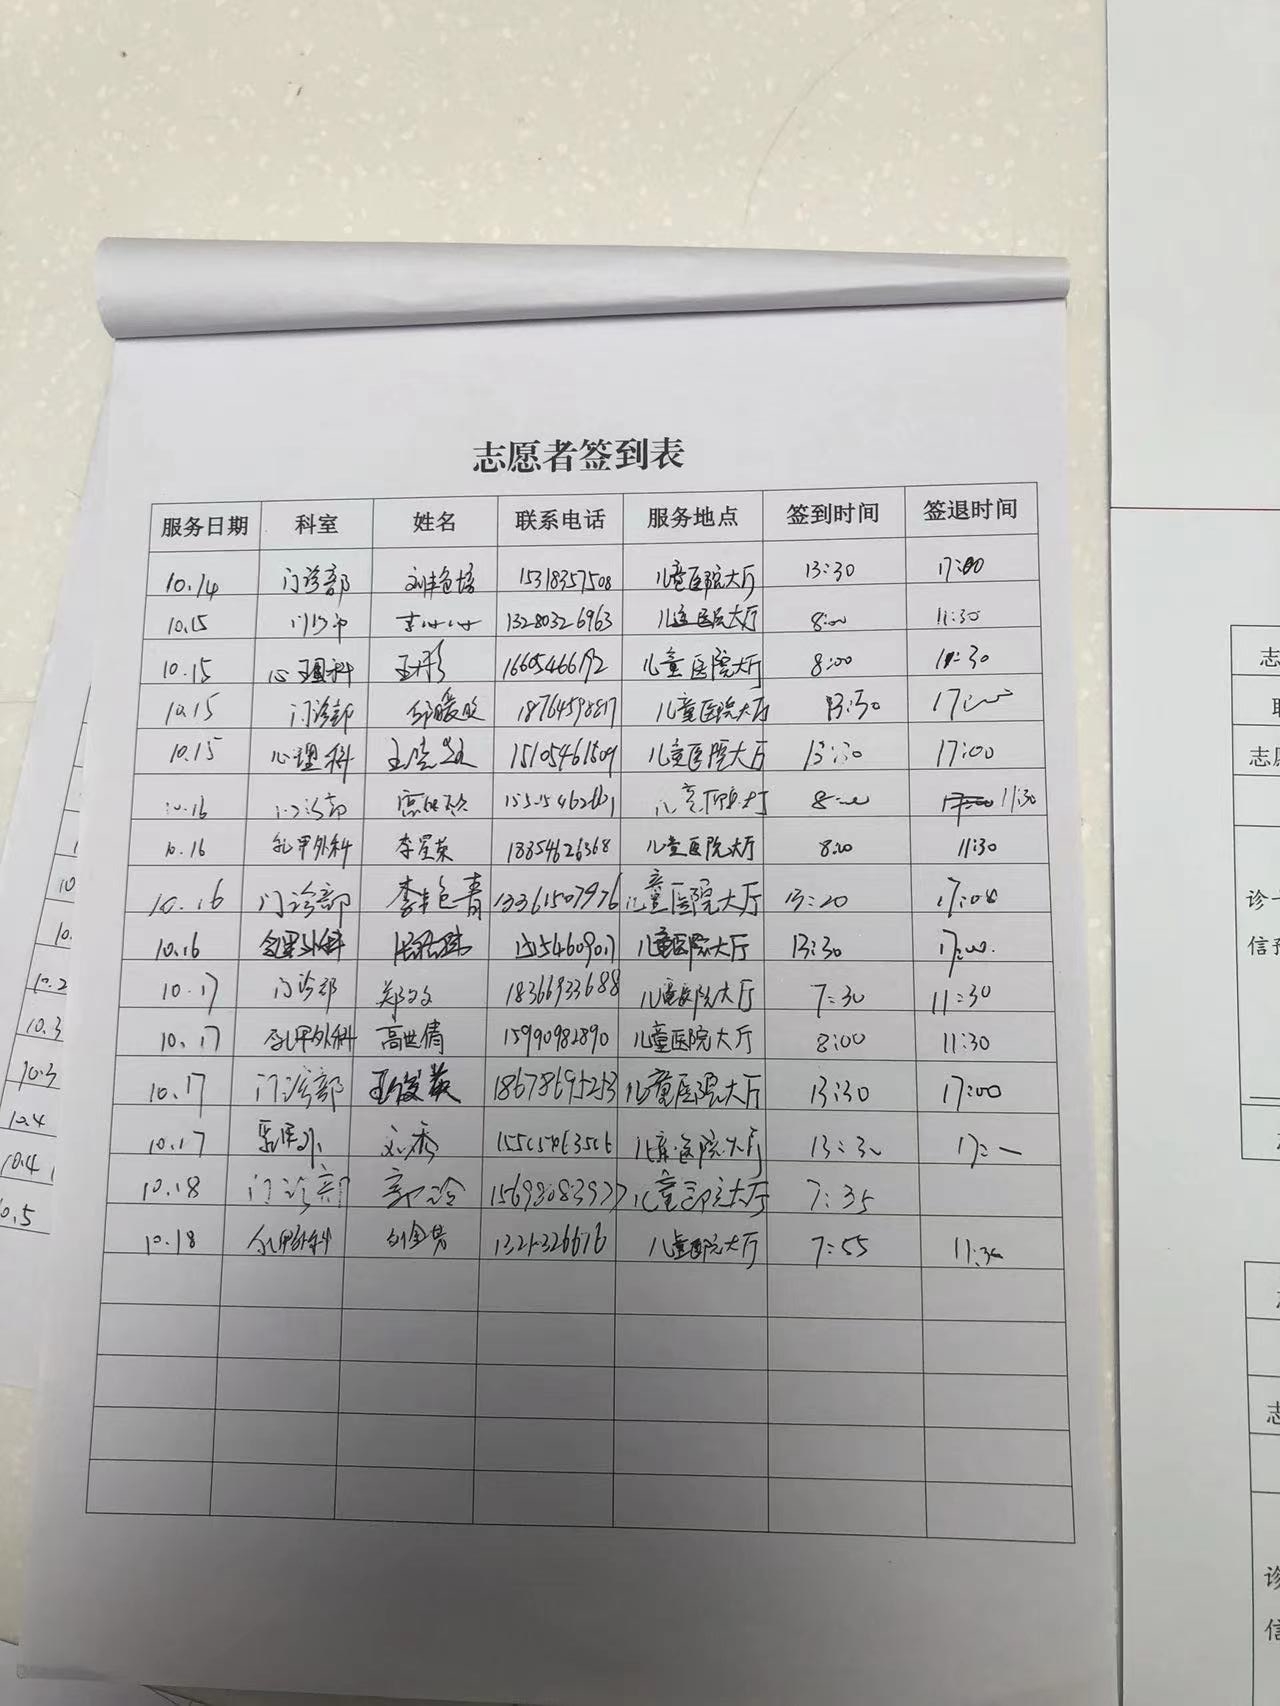 志愿者签到表
服务日期 科室 姓名 联系电话 服务地点 签到时间 签退时间
10.14 门诊部 15318357508 儿童医院大厅 13:30 17:00
10.15 门诊部 13280326963 儿童医院大厅 8:00 11:30
10.15 心理科 王彤 16605466192 儿童医院大厅 8:00 11:30
10.15 门诊部 18764598817 儿童医院大厅 13:30 17:00
10.15 心理科 15105461509 儿童医院大厅 13:30 17:00
10.16 门诊部 8:00 11:30
10.16 乳甲外科 李星荣 18854626368 儿童医院大厅 8:00 11:30
10.16 门诊部 13361507976 儿童医院大厅 13:20 17:00
10.16 15154609017 儿童医院大厅 13:30 17:00.
10.17 门诊部 郑文文 18366933688 儿童医院大厅 7:30 11:30
10.17 乳甲外科 高世倩 15990982890 儿童医院大厅 8:00 11:30
10.17 门诊部 18678695253 儿童医院大厅 13:30 17:00
10.17 刘秀 儿童医院大厅 13:30
10.18 门诊部 郭玲 15698083977 儿童医院大厅 7:35
10.18 乳甲外科 儿童医院大厅 7:55 11:30
10
10.
10.2
10.3
10.3
10.4
10.4
0.5
志
联
志愿
诊
信
志
诊
信